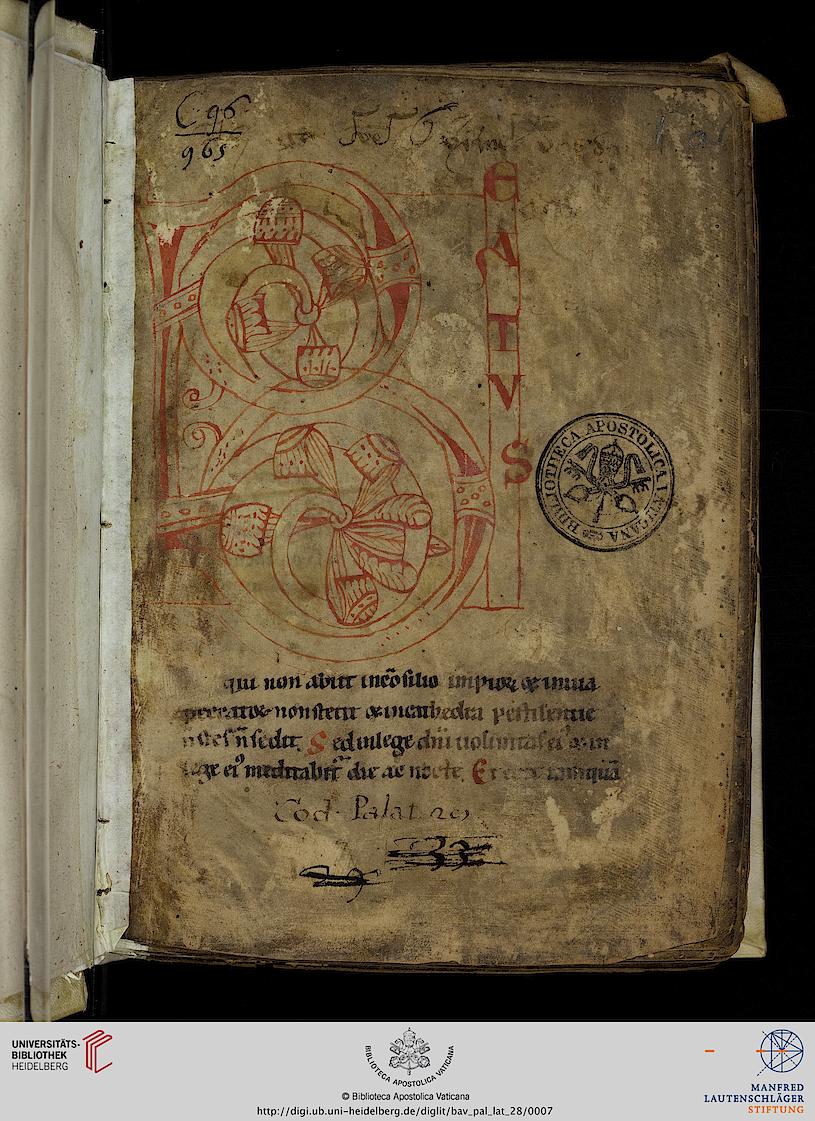 C. 96
965
556
B
E
A
T
V
S
BIBLIOTHECA APOSTOLICA VATICANA
qui non abiit in cōsilio impioꝝ & in uia
peccatoꝝ non stetit & in cathedra pestilentie
n̄ sedit. Sed in lege dn̄i uoluntas ei' & in
lege ei' meditabit' die ac nocte. Et erit tamquā
Cod. Palat.
33
UNIVERSITÄTS-
BIBLIOTHEK
HEIDELBERG
BIBLIOTECA APOSTOLICA VATICANA
© Biblioteca Apostolica Vaticana
http://digi.ub.uni-heidelberg.de/diglit/bav_pal_lat_28/0007
MANFRED
LAUTENSCHLÄGER
STIFTUNG